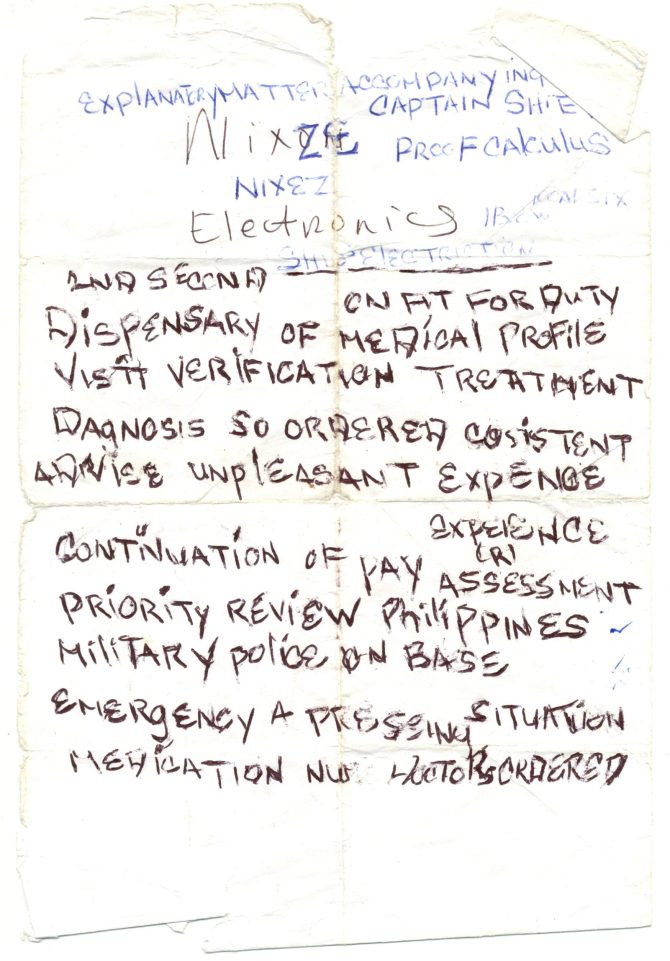 EXPLANATERY MATTER ACCOMPANYING
CAPTAIN
PROOF CALKULUS
NIXEZ
Electronics IBEW
SHIPS ELECTRICTION
2ND SECOND
ON FIT FOR DUTY
DISPENSARY OF MEDICAL PROFILE
VISIT VERIFICATION TREATMENT
DAGNOSIS SO ORDERED COSISTENT
ADVISE UNPLEASANT EXPENCE
EXPEIENCE
(R)
CONTINUATION OF PAY ASSESSMENT
PRIORITY REVIEW PhiliPPINES
MILITARY POLICE ON BASE
EMERGENCY A PRESSING SITUATION
MEDICATION DOCTORS ORDERED